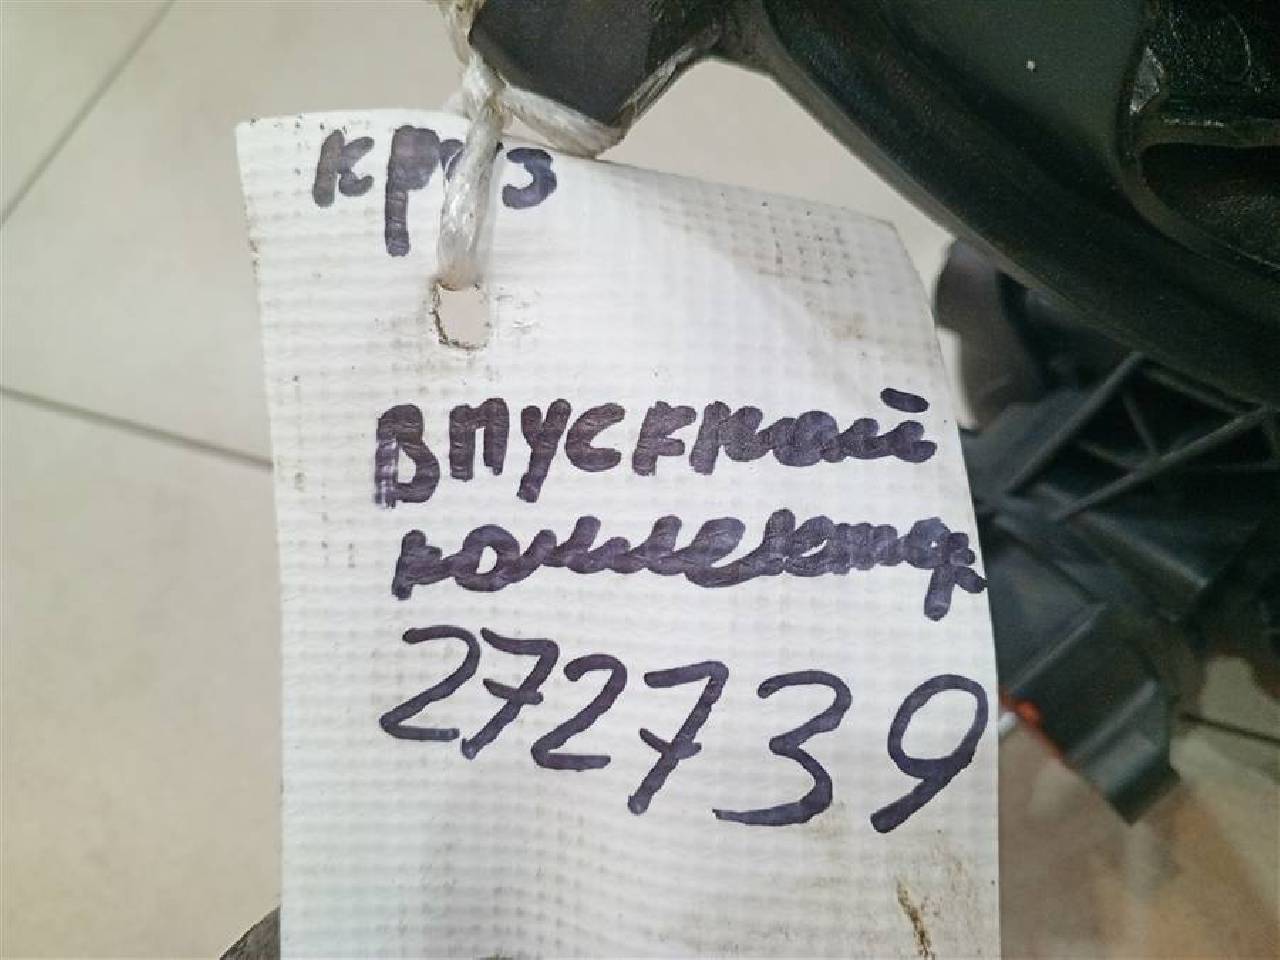 круз
впускной
коллектор
272739